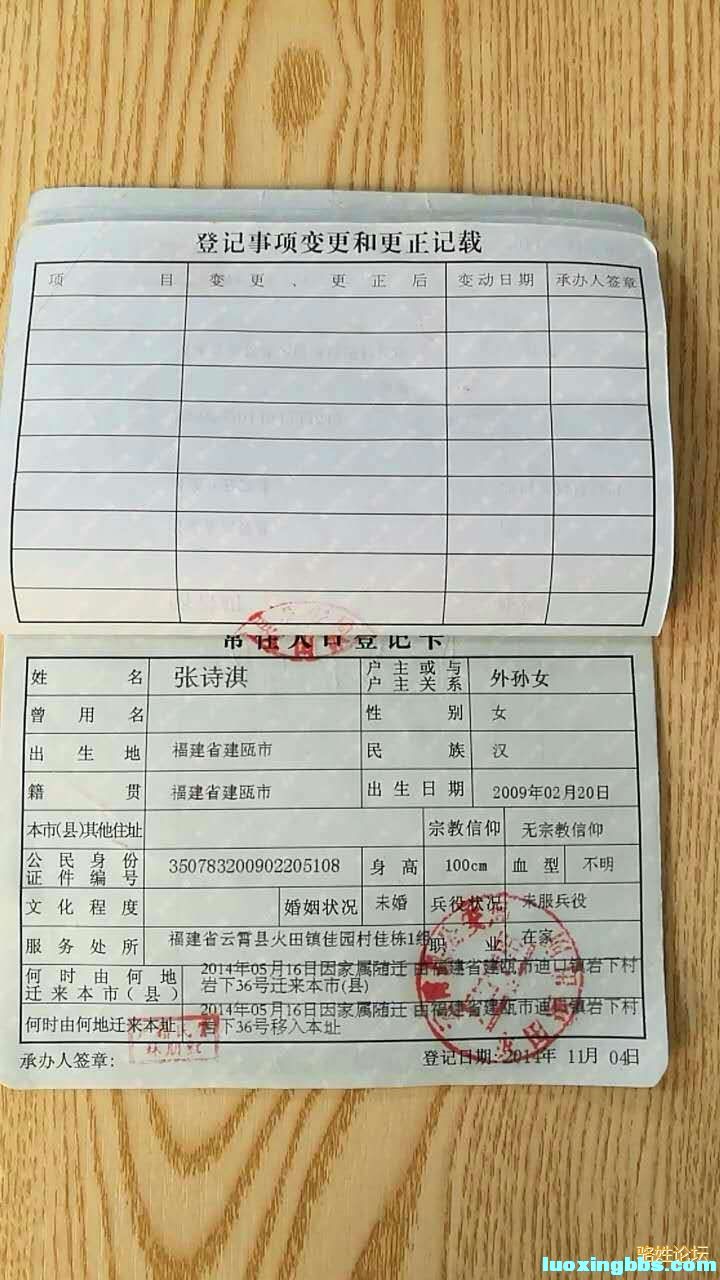 登记事项变更和更正记载
项 目 变 更 、 更 正 后 变动日期 承办人签章
常住人口登记卡
姓 名 张诗淇 户主或与户主关系 外孙女
曾 用 名 性 别 女
出 生 地 福建省建瓯市 民 族 汉
籍 贯 福建省建瓯市 出生日期 2009年02月20日
本市(县)其他住址 宗教信仰 无宗教信仰
公民身份证件编号 350783200902205108 身高 100cm 血型 不明
文化程度 婚姻状况 未婚 兵役状况 未服兵役
服务处所 福建省云霄县火田镇佳园村佳栋1组 职 业 在家
何时由何地迁来本市(县) 2014年05月16日因家属随迁 由福建省建瓯市迪口镇岩下村
岩下36号迁来本市(县)
何时由何地迁来本址 2014年05月16日因家属随迁 由福建省建瓯市迪口镇岩下村
岩下36号移入本址
承办人签章: 登记日期: 2014年 11月 04日
骆姓论坛
luoxingbbs.com